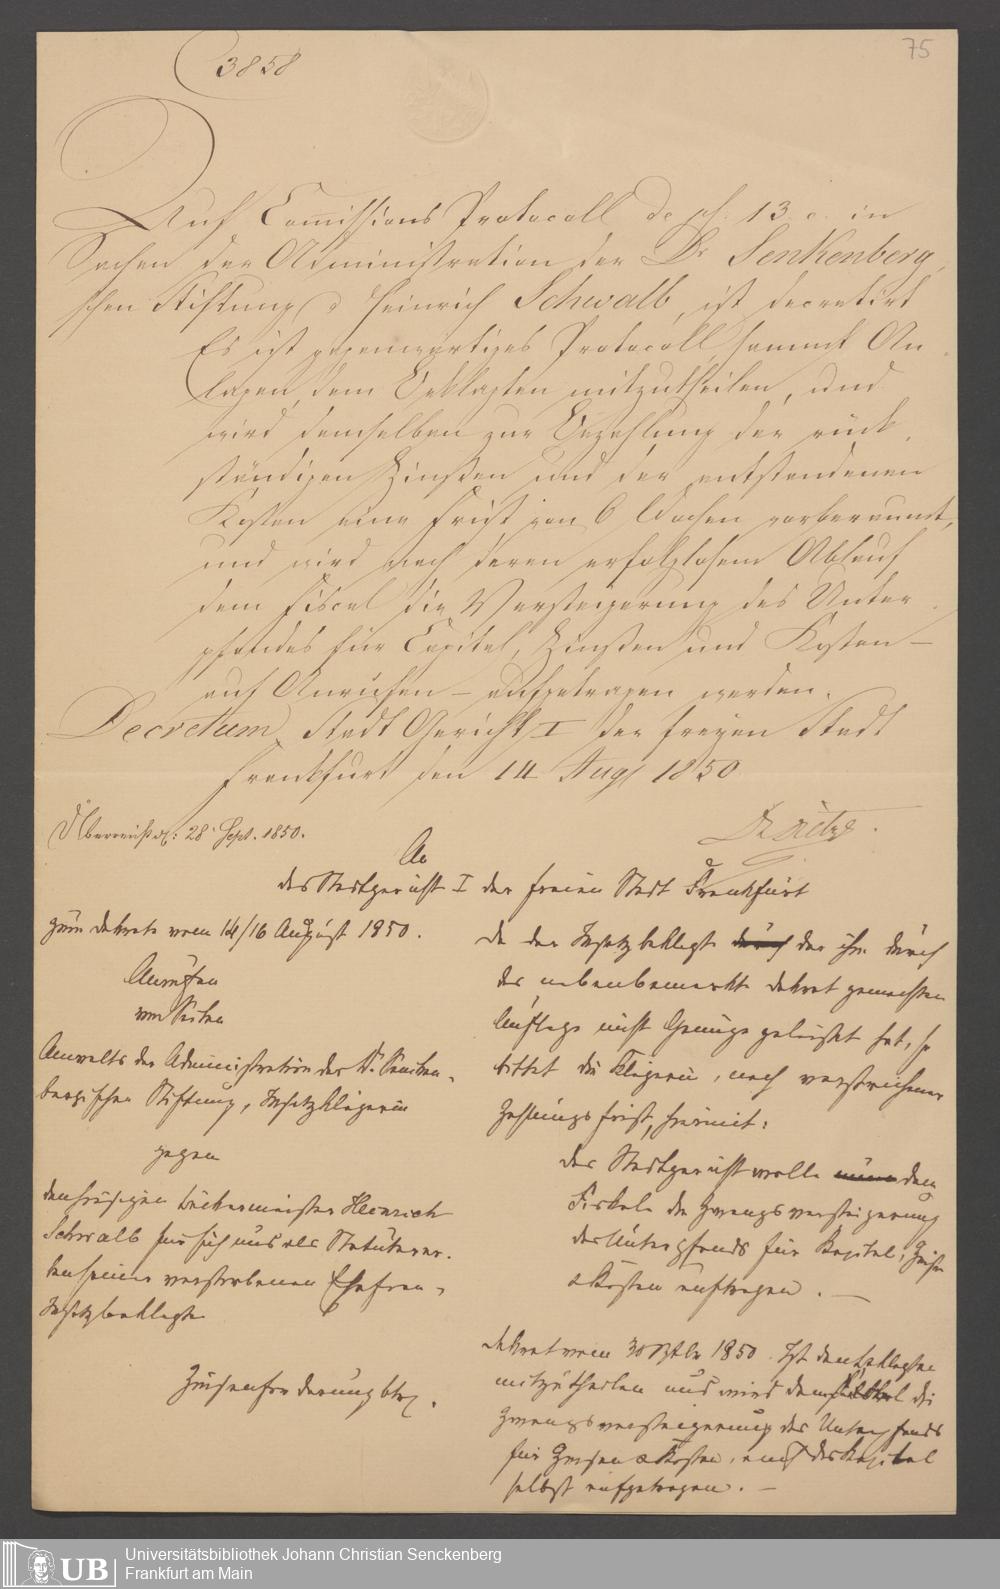 3858
75
Auf Comissions Protocoll de pl. 13. c. in
Sachen der Administration der Dr Senkenberg,
schen Stiftung Heinrich Schwalb, ist decretirt
Es ist gegenwärtiges Protocoll sammt An
lagen, dem Beklagten mitzutheilen, und
wird demselben zur Bezahlung der rück,
ständigen Zinßen und der entstandenen
Kosten eine Frist von 6 Wochen vorberaumt,
und wird nach deren erfolglosem Ablauf
dem Fiscal die Versteigerung des Unter
pfandes für Capital, Zinßen und Kosten –
auf Anrufen – aufgetragen werden.
Decretum, Stadt Gericht I der freyen Stadt
Frankfurt den 14 Aug 1850
28. Sept. 1850.
An
das Stadtgericht I der freien Stadt Frankfurt
zum Dekrete vom 14/16 August 1850.
Anrufen
von Seiten
Anwalts der Administration der Dr. Sencken-
bergischen Stiftung, Insatzklägerin
gegen
den hiesigen Bäckermeister Heinrich
Schwalb für sich und als Statutarer-
ben seiner verstorbenen Ehefrau,
Insatzbeklagte
Zinsenforderung btr.
Da der Insatzbeklagte durch der ihm durch
das nebenbemerkte Dekret gemachten
Auflage nicht Genüge geleistet hat, so
bittet die Klägerin, nach verstrichener
Zahlungsfrist, hiermit:
das Stadtgericht wolle nun dem
Fiskale die Zwangsversteigerung
des Unterpfands für Kapital, Zinsen
& Kosten auftragen. —
Dekret vom 30 1850. Ist dem Beklagten
mitzutheilen und wird dem Fiskal die
Zwangsversteigerung des Unterpfands
für Zinsen & Kosten, auch das Kapital
selbst aufgetragen. —
UB
Universitätsbibliothek Johann Christian Senckenberg
Frankfurt am Main